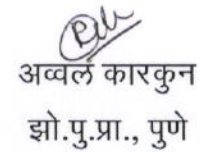 अव्वल कारकुन
झो.पु.प्रा., पुणे